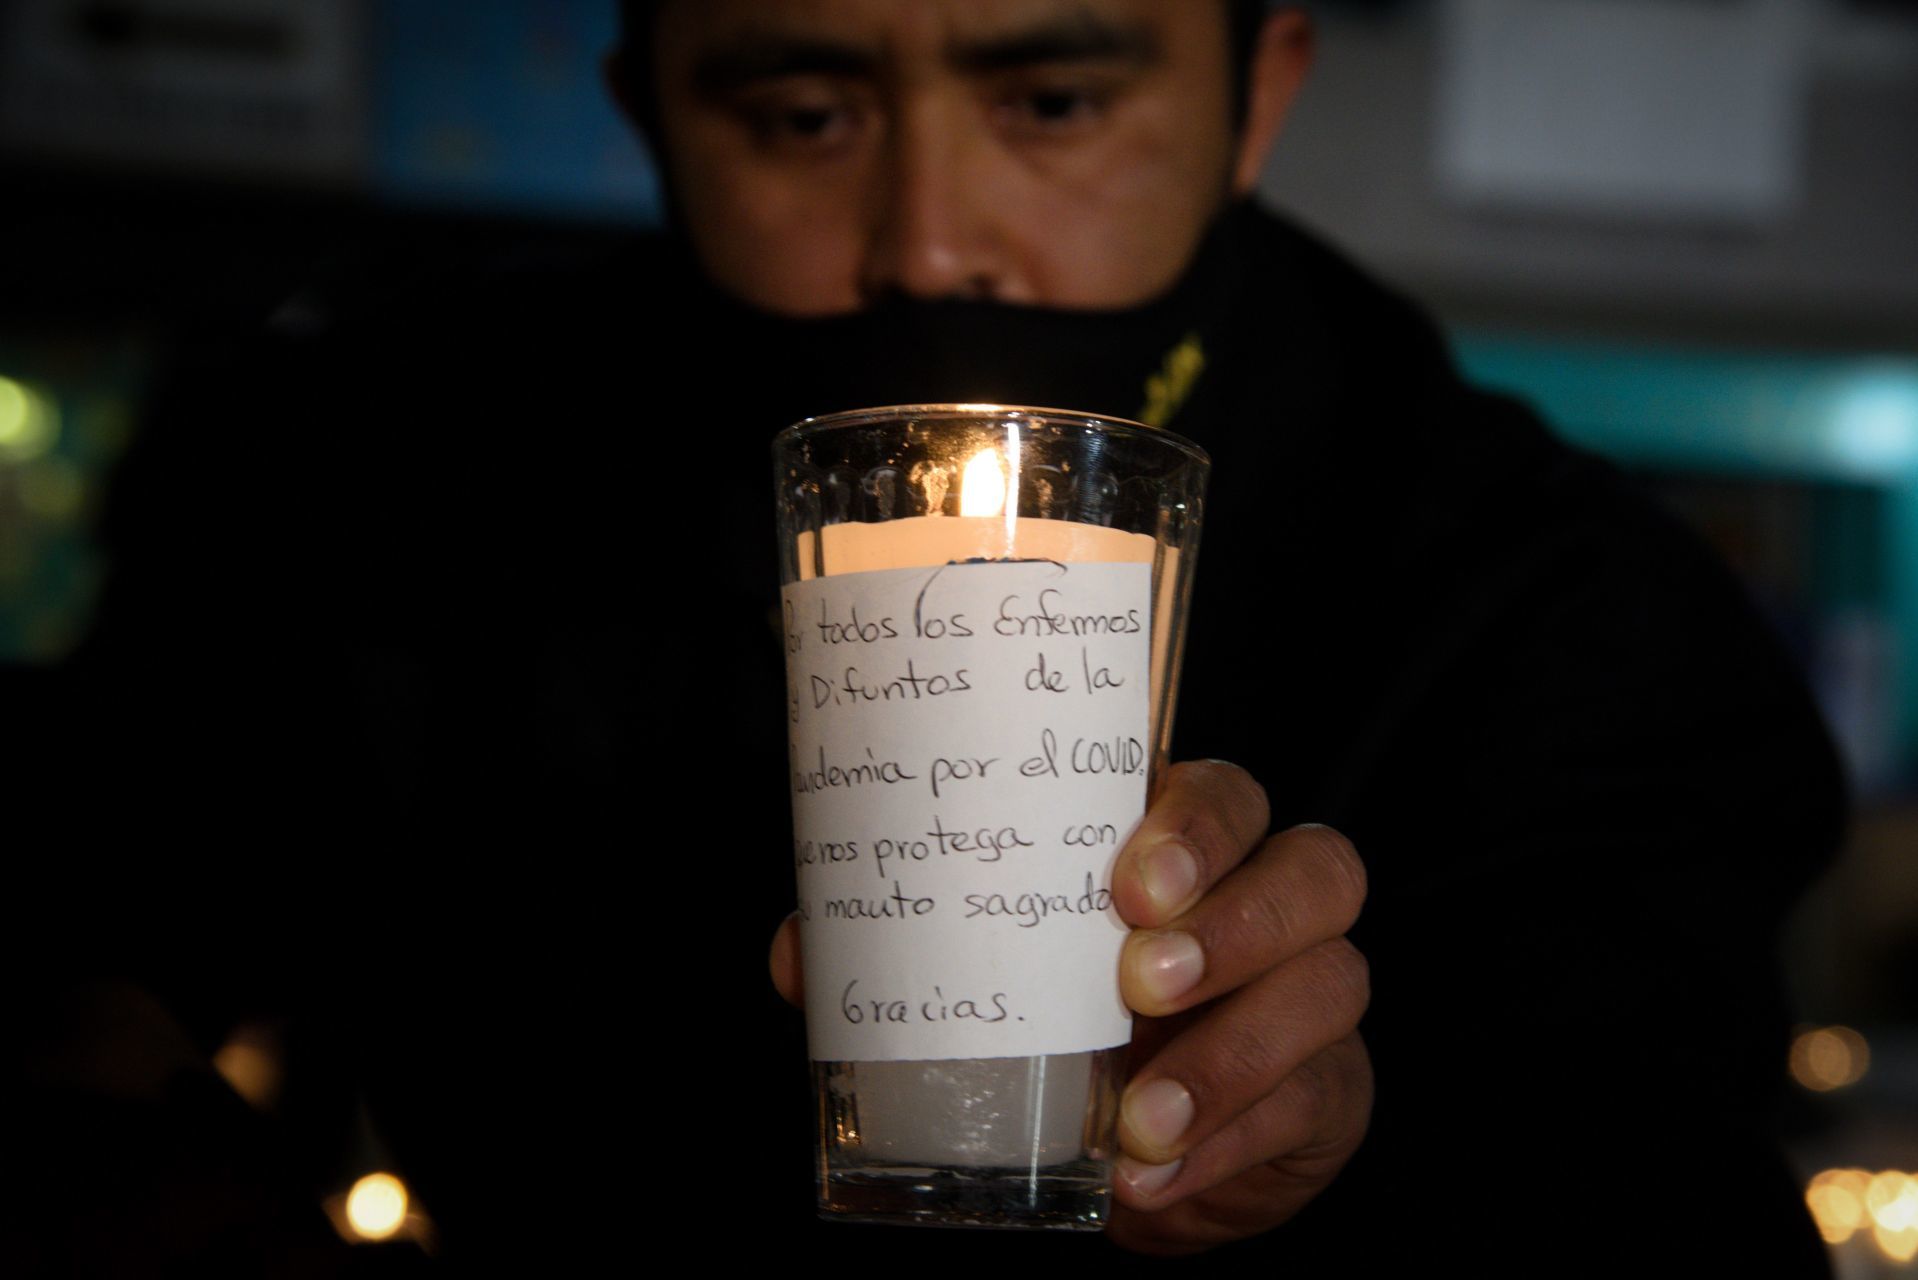 Por todos los Enfermos
y Difuntos de la
Pandemia por el COVID.
nos protega con
su mauto sagrado
Gracias.